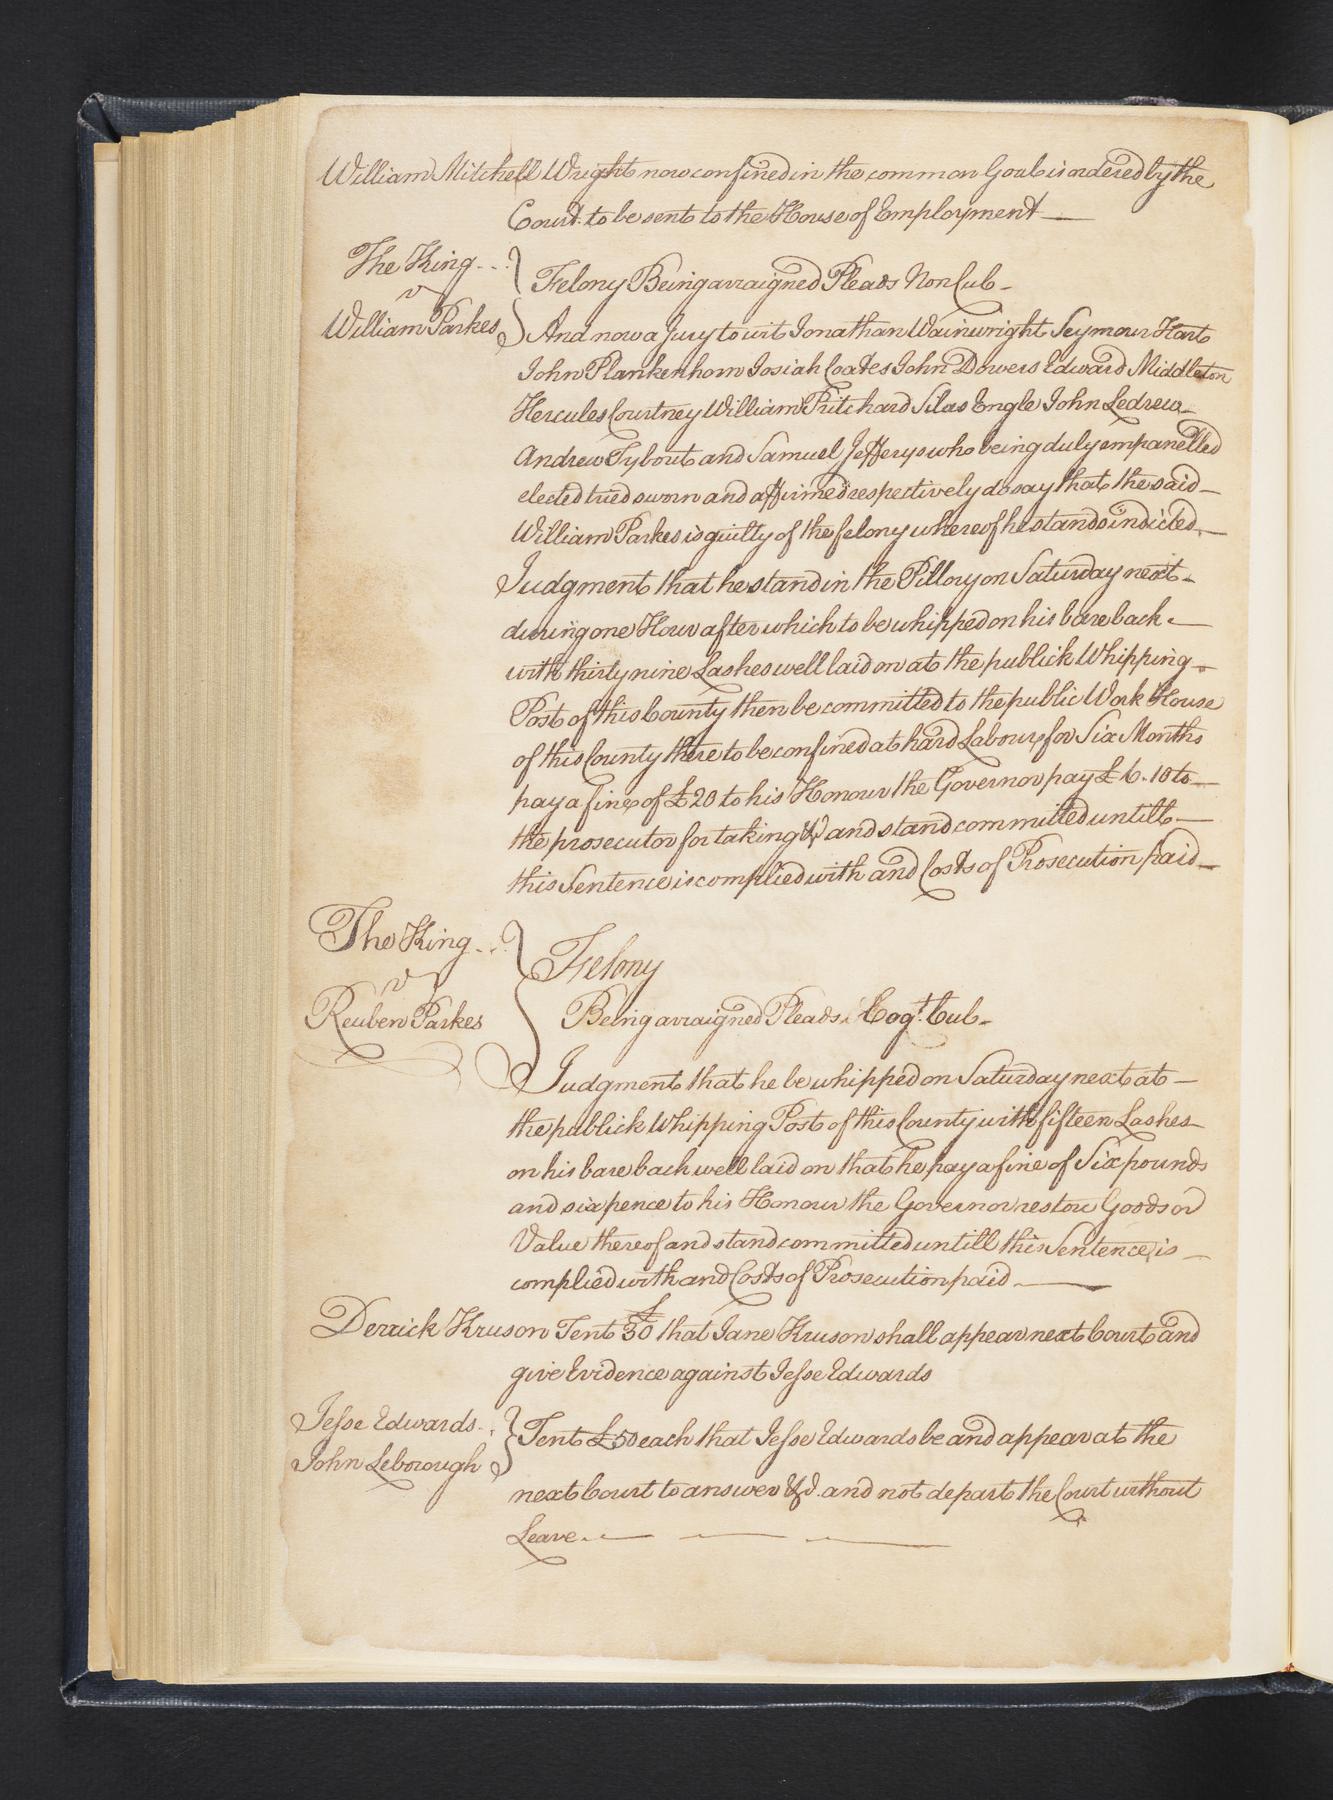 William Mitchell Wright now confined in the common Goal is ordered by the
Court to be sent to the House of Employment
The King
v
William Parkes
Felony Being arraigned Pleads Non Cul
And now a Jury to wit Jonathan Wainwright Seymour Hart
John Plankenhorn Josiah Coates John Dowers Edward Middleton
Hercules Courtney William Pritchard Silas Engle John Ledrew
Andrew Tybout and Samuel Jefferys who being duly empanelled
elected tried sworn and affirmed respectively do say that the said
William Parkes is guilty of the felony whereof he stands indicted
Judgment that he stand in the Pillory on Saturday next
during one Hour after which to be whipped on his bare back
with thirty nine Lashes well laid on at the publick Whipping
Post of this County then be committed to the public Work House
of this County there to be confined at hard Labour for Six Months
pay a fine of £20 to his Honour the Governor pay £6.10 to
the prosecutor for taking &c and stand committed untill
this Sentence is complied with and Costs of Prosecution paid
The King
v
Reuben Parkes
Felony
Being arraigned Pleads Cogt. Cul
Judgment that he be whipped on Saturday next at
the publick Whipping Post of this County with fifteen Lashes
on his bare back well laid on that he pay a fine of Six pounds
and six pence to his Honour the Governor restore Goods or
Value thereof and stand committed untill this Sentence is
complied with and Costs of Prosecution paid
Derrick Kruson Tent £30 that Jane Kruson shall appear next Court and
give Evidence against Jesse Edwards
Jesse Edwards
John Leborough
Tent £50 each that Jesse Edwards be and appear at the
next Court to answer &c. and not depart the Court without
Leave